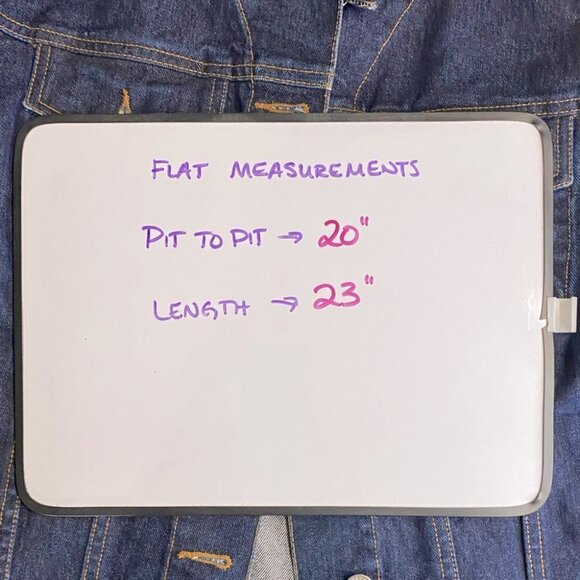 FLAT MEASUREMENTS
PIT TO PIT → 20"
LENGTH → 23"